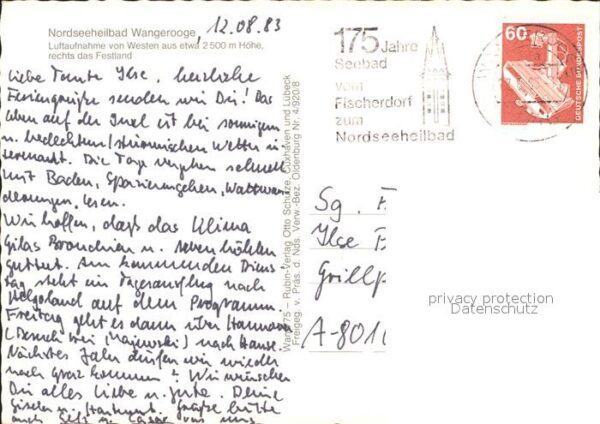 Nordseeheilbad Wangerooge, 12.08.83
Luftaufnahme von Westen aus etwa 2500 m Höhe,
rechts das Festland
Liebe Tante Ilse, herzliche
Feriengrüße senden wir Dir! Das
Leben auf der Insel ist bei sonnigem
u. bedecktem/stürmischem Wetter
Die Tage vergehen schnell
mit Baden, Spazierengehen, Wattwan
derungen, Lesen.
Wir hoffen, daß das Klima
Gilas Bronchien u. Nebenhöhlen
guttut. Am kommenden Diens-
tag steht ein Tagesausflug nach
Helgoland auf dem Programm.
Freitag geht es dann über Hannover
(Besuch bei Majewski) nach Hause.
Nächstes Jahr dürfen wir wieder
nach Graz kommen? Wir wünschen
Dir alles Liebe u. Gute. Deine
Gisela u. Hartmut. Grüße bitte
auch von uns
Wang 75 – Rubin-Verlag Otto Schulze, Cuxhaven und Lübeck
Freigeg. v. Präs. d. Nds. Verw.-Bez. Oldenburg Nr. 4/920/8
175 Jahre
Seebad
vom
Fischerdorf
zum
Nordseeheilbad
60
DEUTSCHE BUNDESPOST
Sg. F
Ilse
Grillp
A-8010
privacy protection
Datenschutz